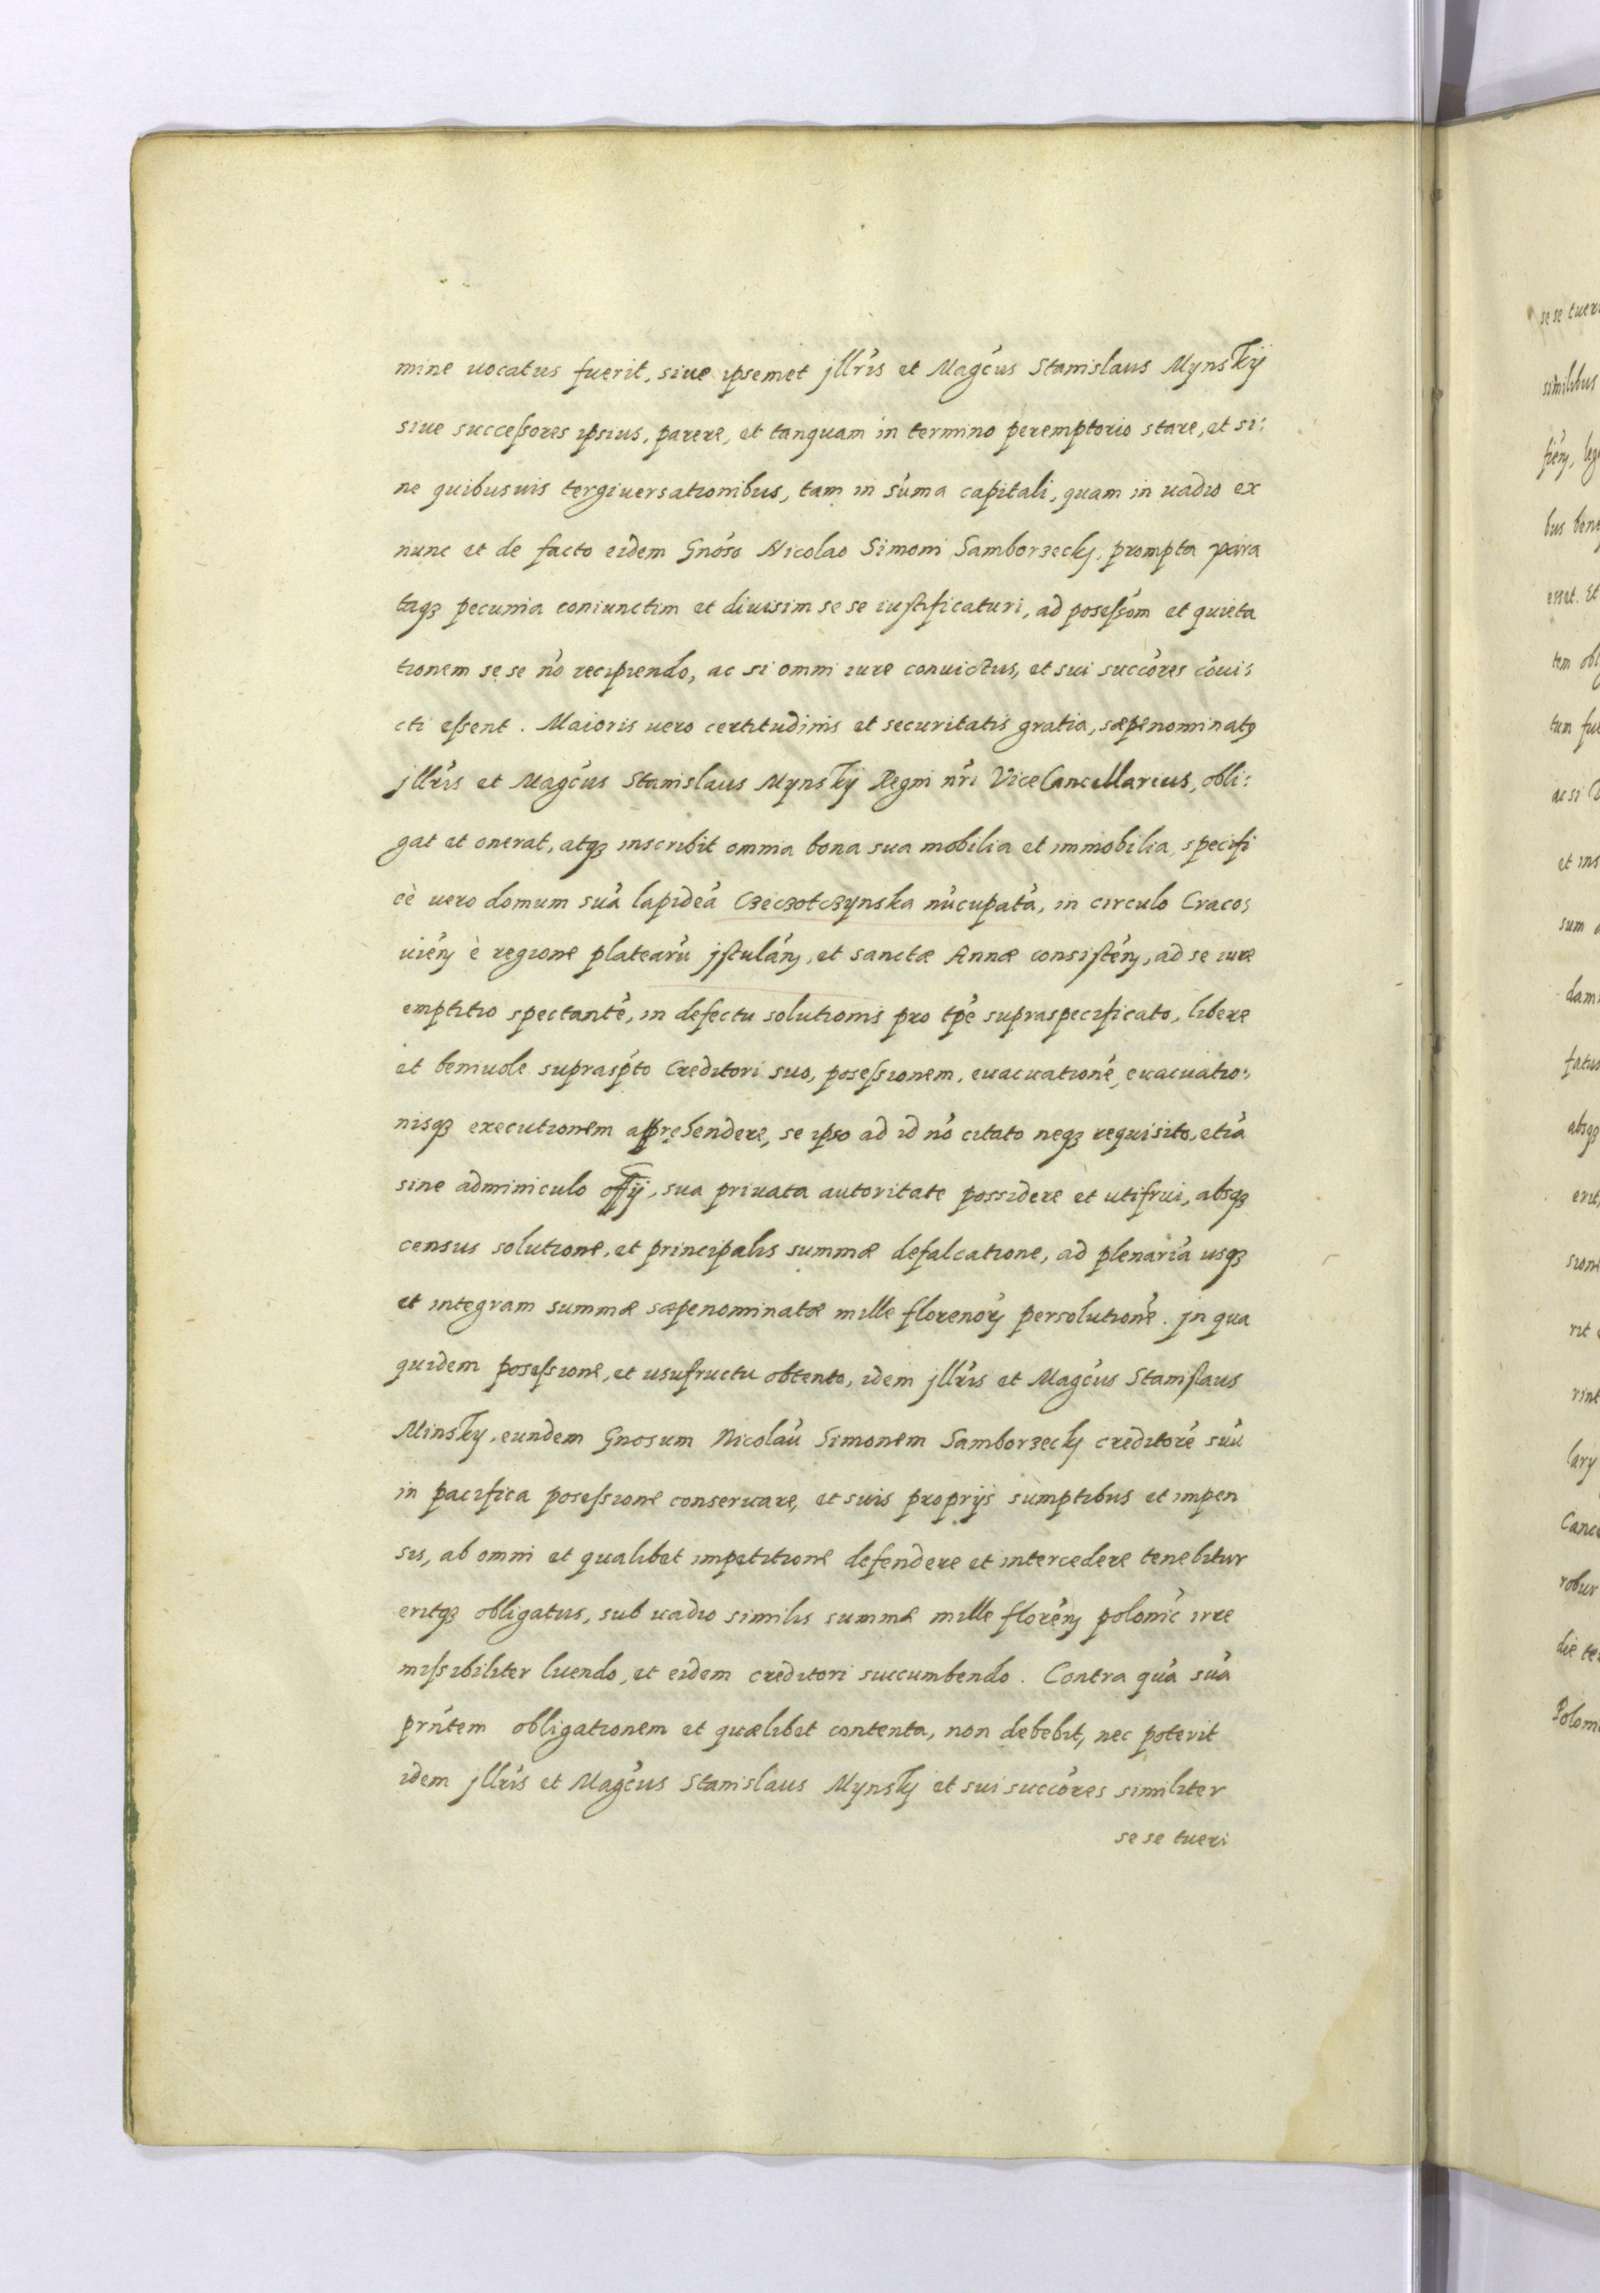 mine uocatus fuerit, siue ipsemet jllris et Magcus Stanislaus Mynskÿ
siue successores ipsius, parere, et tanquam in termino peremptorio stare, et si:
ne quibusuis tergiuersationibus, tam in sũma capitali, quam in uadio ex
nunc et de facto eidem Gnoso Nicolao Simoni Samborzeckj, prompta para
taqꝫ pecunia coniunctim et diuisim se se iustificaturi, ad posessom et quieta
tionem se se nõ recipiendo, ac si omni iure conuictus, et sui succores cõui:
cti essent. Maioris uero certitudinis et securitatis gratia, sæpenominatꝰ
jllris et Magcus Stanislaus Mynskÿ Regni nri ViceCancellarius, obli:
gat et onerat, atqꝫ inscribit omnia bona sua mobilia et immobilia, specifi
cè uero domum suã lapideã Czeczotczynska nũcupatã, in circulo Craco:
uień è regione platearũ jstulań, et sanctæ Annæ consisteń, ad se iure
emptitio spectantẽ, in defectu solutionis pro tpe supraspecificato, libere
et beniuole suprasp̃to Creditori suo, posessionem, euacuationẽ, euacuatio:
nisqꝫ executionem apprehendere, se ipso ad id nõ citato neqꝫ requisito, etiã
sine adminiculo offÿ, sua priuata autoritate possidere et utifrui, absqꝫ
census solutione, et principalis summæ defalcatione, ad plenariã usqꝫ
et integram summæ sæpenominatæ mille florenorꝫ persolutionẽ. jn qua
quidem posessione, et usufructu obtento, idem jllris et Magcus Stanislaus
Minsky, eundem Gnosum Nicolaũ Simonem Samborzeckj creditorẽ suũ
in pacifica posessione conseruare, et suis proprijs sumptibus et impen
sis, ab omni et qualibet impetitione defendere et intercedere tenebitur
eritqꝫ obligatus, sub uadio similis summæ mille floreń polonic irre
missibiliter luendo, et eidem creditori succumbendo. Contra quã suã
prntem obligationem et quælibet contenta, non debebit, nec poterit
idem jllris et Magcus Stanislaus Mynskj et sui succores similiter
se se tueri
se se tueri
similibus
bus bene
esset. Et
ac si
et ins
sum
fatus
absqꝫ
erit,
sione
rint
Canc
robur
die te
Poloni